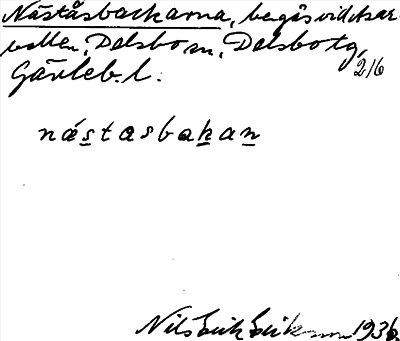 Nåståsbackarna, beg. å svidksar-
vallen, Delsbo sn, Delsbo tg,
Gävleb. l. 2/6
nástasbakan
Nils Erik Eriksson 1936.